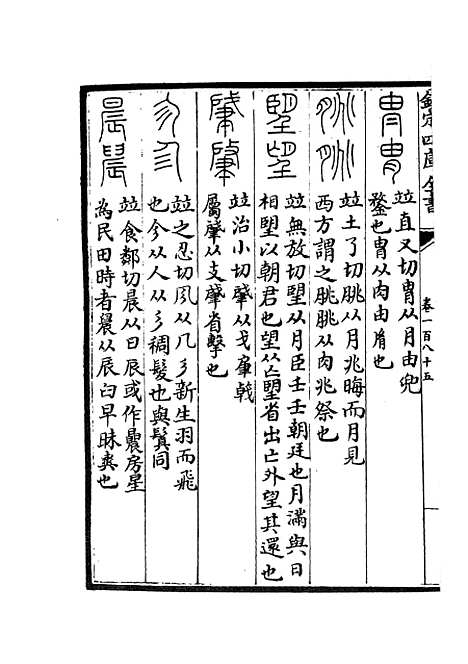 欽定四庫全書 卷一百八十五
冑胄
竝直又切冑从月由兜
鍪也胄从肉由胤也
朓脁
竝土了切朓从月兆晦而月見
西方謂之朓脁从肉兆祭也
朢望
竝無放切朢从月臣壬壬朝廷也月滿與日
相朢以朝君也望从亡朢省出亡外望其還也
肈肇
竝治小切肈从戈肁戟
屬肇从支肈省擊也
竝之忍切 从几彡新生羽而飛
也今从人从彡稠髮也與鬒同
晨䢅
竝食鄰切晨从日辰或作曟房星
為民田時者䢅从辰臼早昧爽也